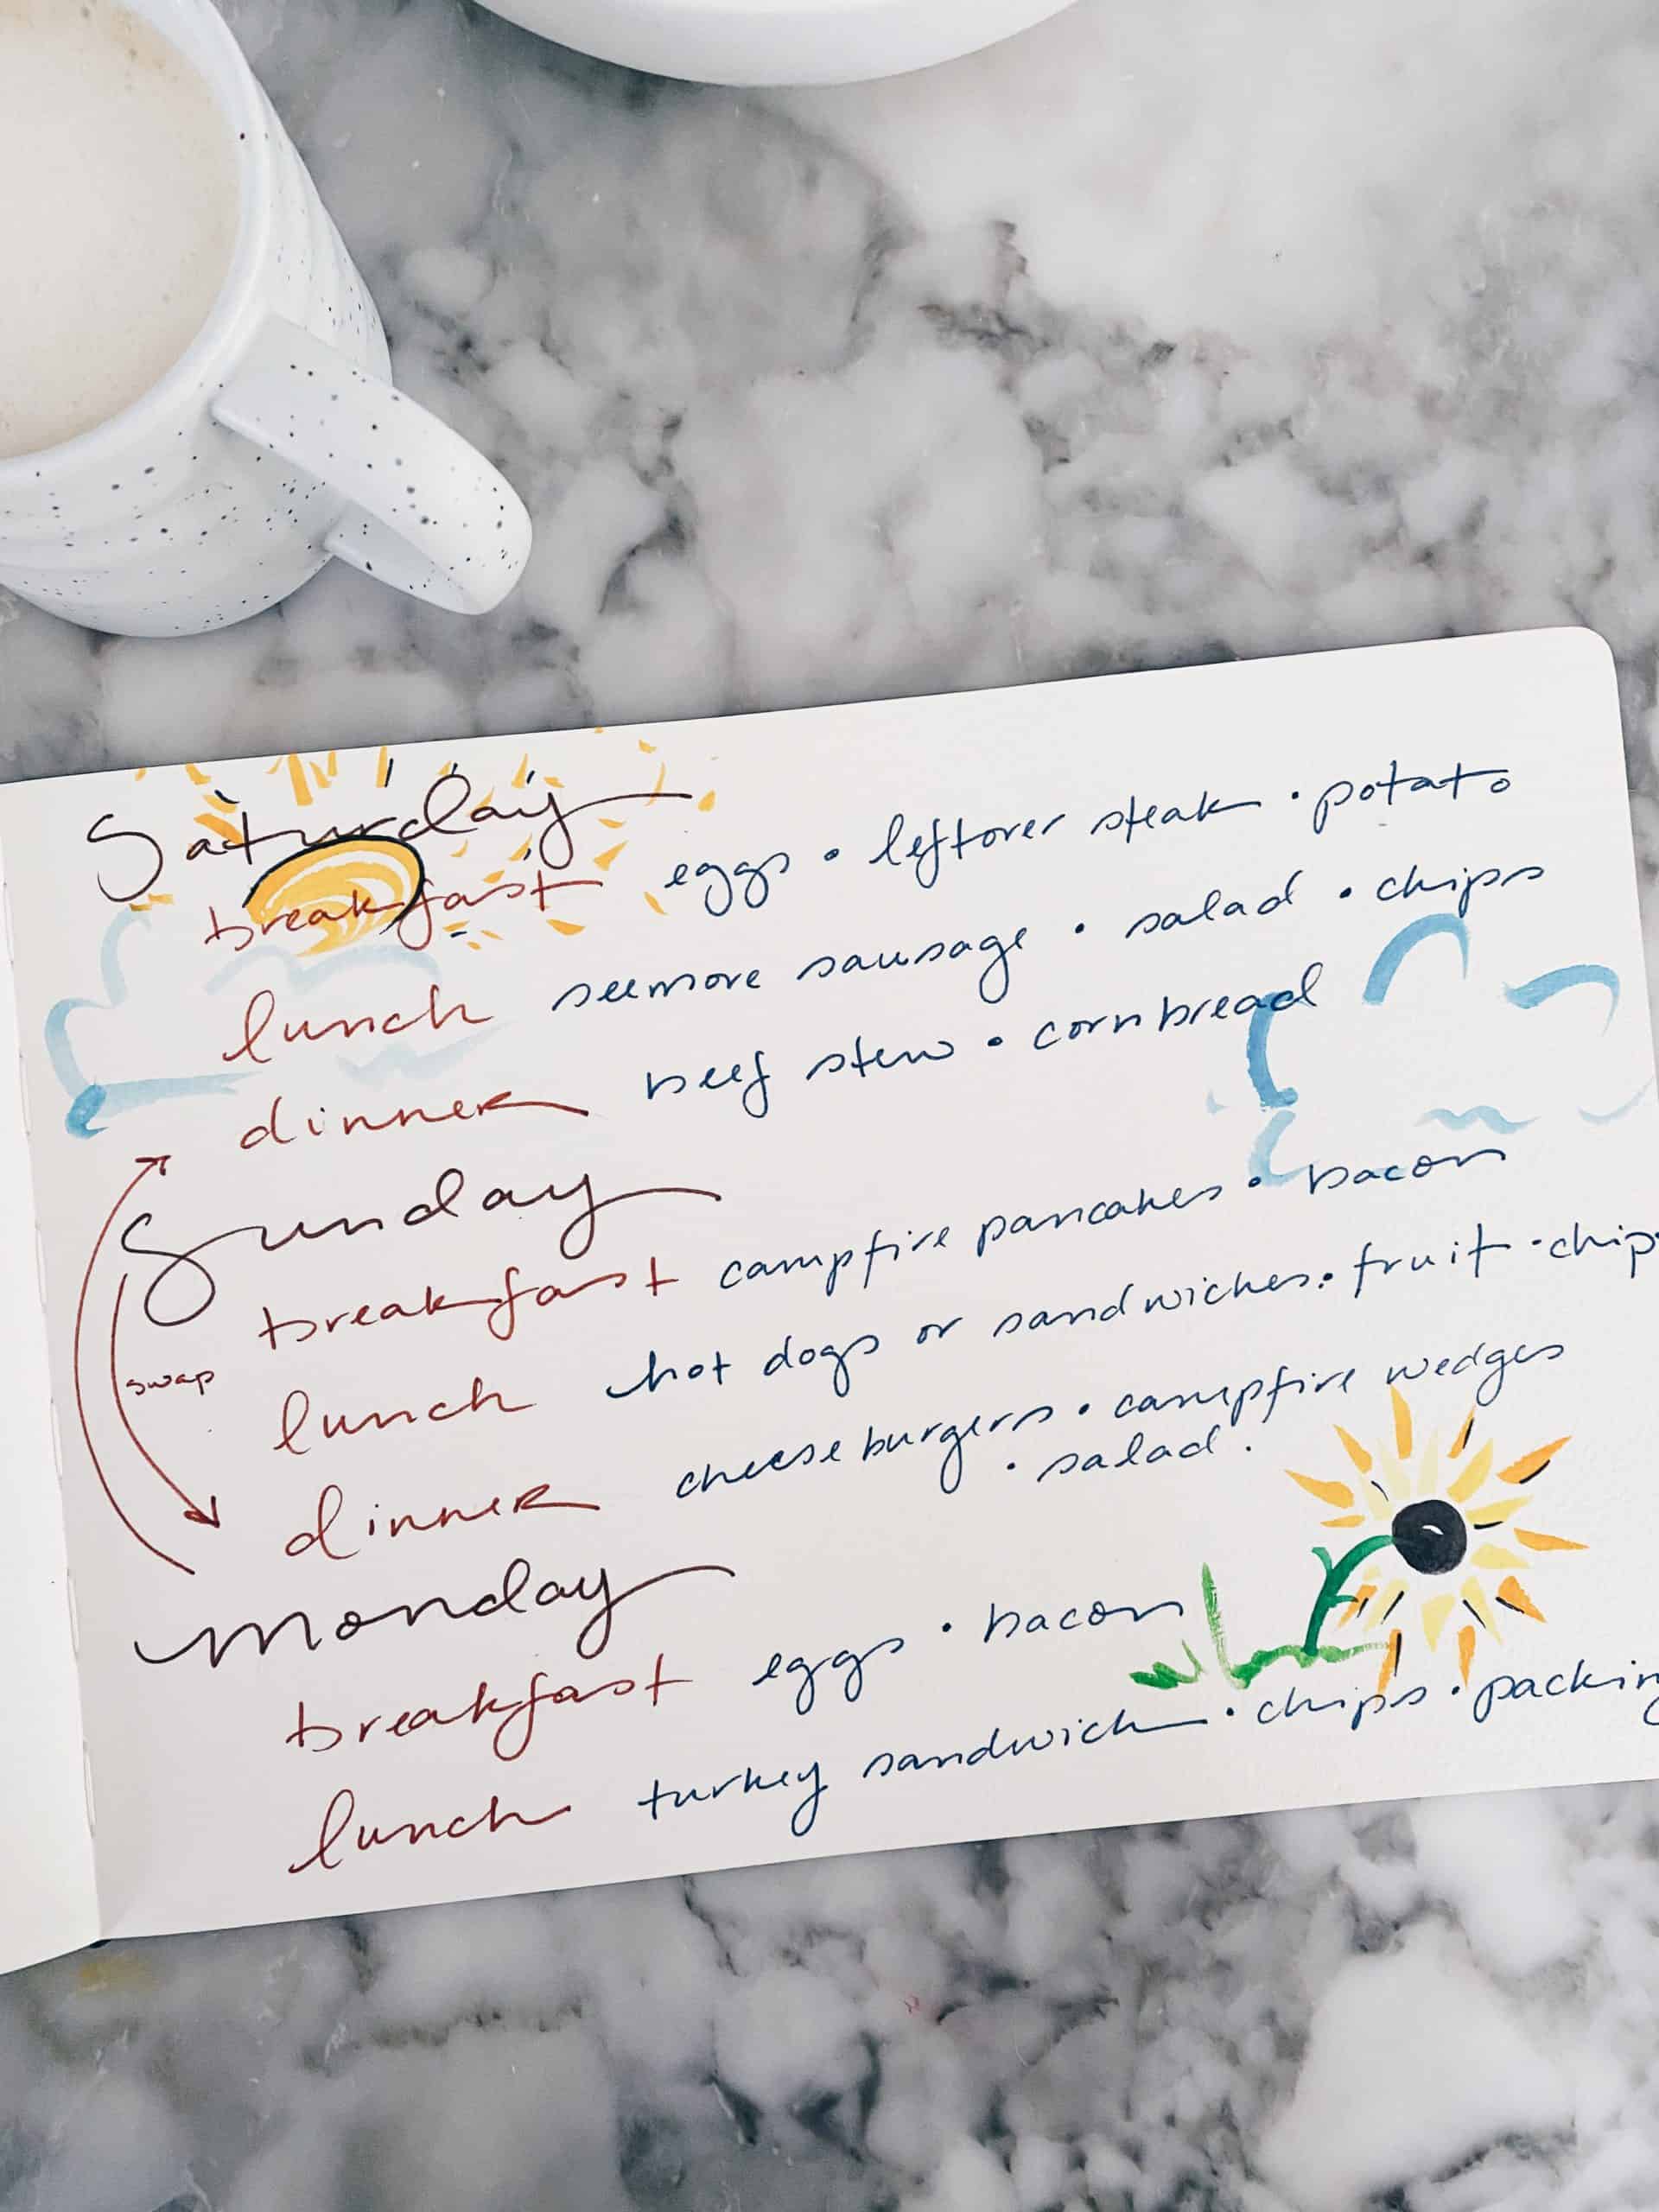 Saturday
breakfast eggs • leftover steak • potato
lunch seemore sausage • salad • chips
dinner beef stew • cornbread
Sunday
breakfast campfire pancakes • bacon
swap
lunch hot dogs or sandwiches • fruit • chip
dinner cheeseburgers • campfire wedges
• salad •
monday
breakfast eggs • bacon
lunch turkey sandwich • chips • packin